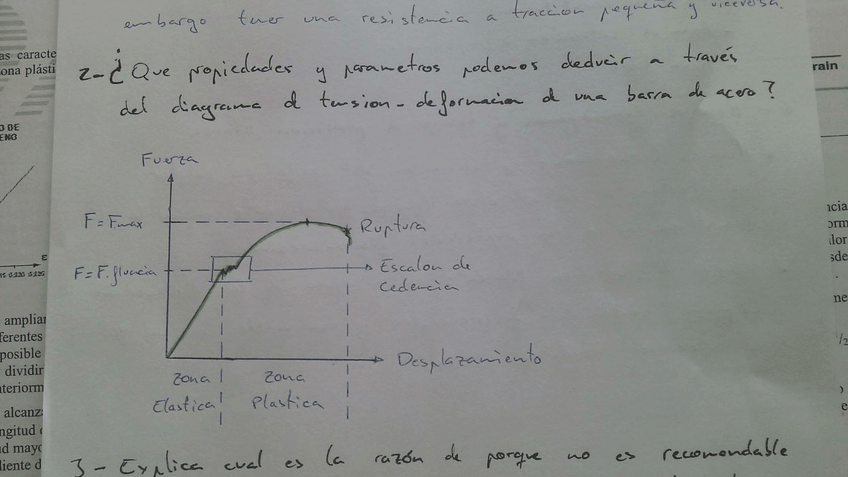 embargo tener una resistencia a traccion pequeña y viceversa.
2-¿Que propiedades y parametros podemos deducir a través
del diagrama d tension-deformacion d una barra de acero?
Fuerza
F=Fmax
Ruptura
F=F.fluencia
Escalon de
cedencia
Desplazamiento
Zona
Elastica
Zona
Plastica
3-Explica cual es la razón de porque no es recomendable
as caracte
ona plásti
O DE
ENG
ε
ampliar
ferentes
posible
dividir
teriorm
alcanza
ngitud
ad mayo
liente d
rain
ncia
orm
alor
sde
ne